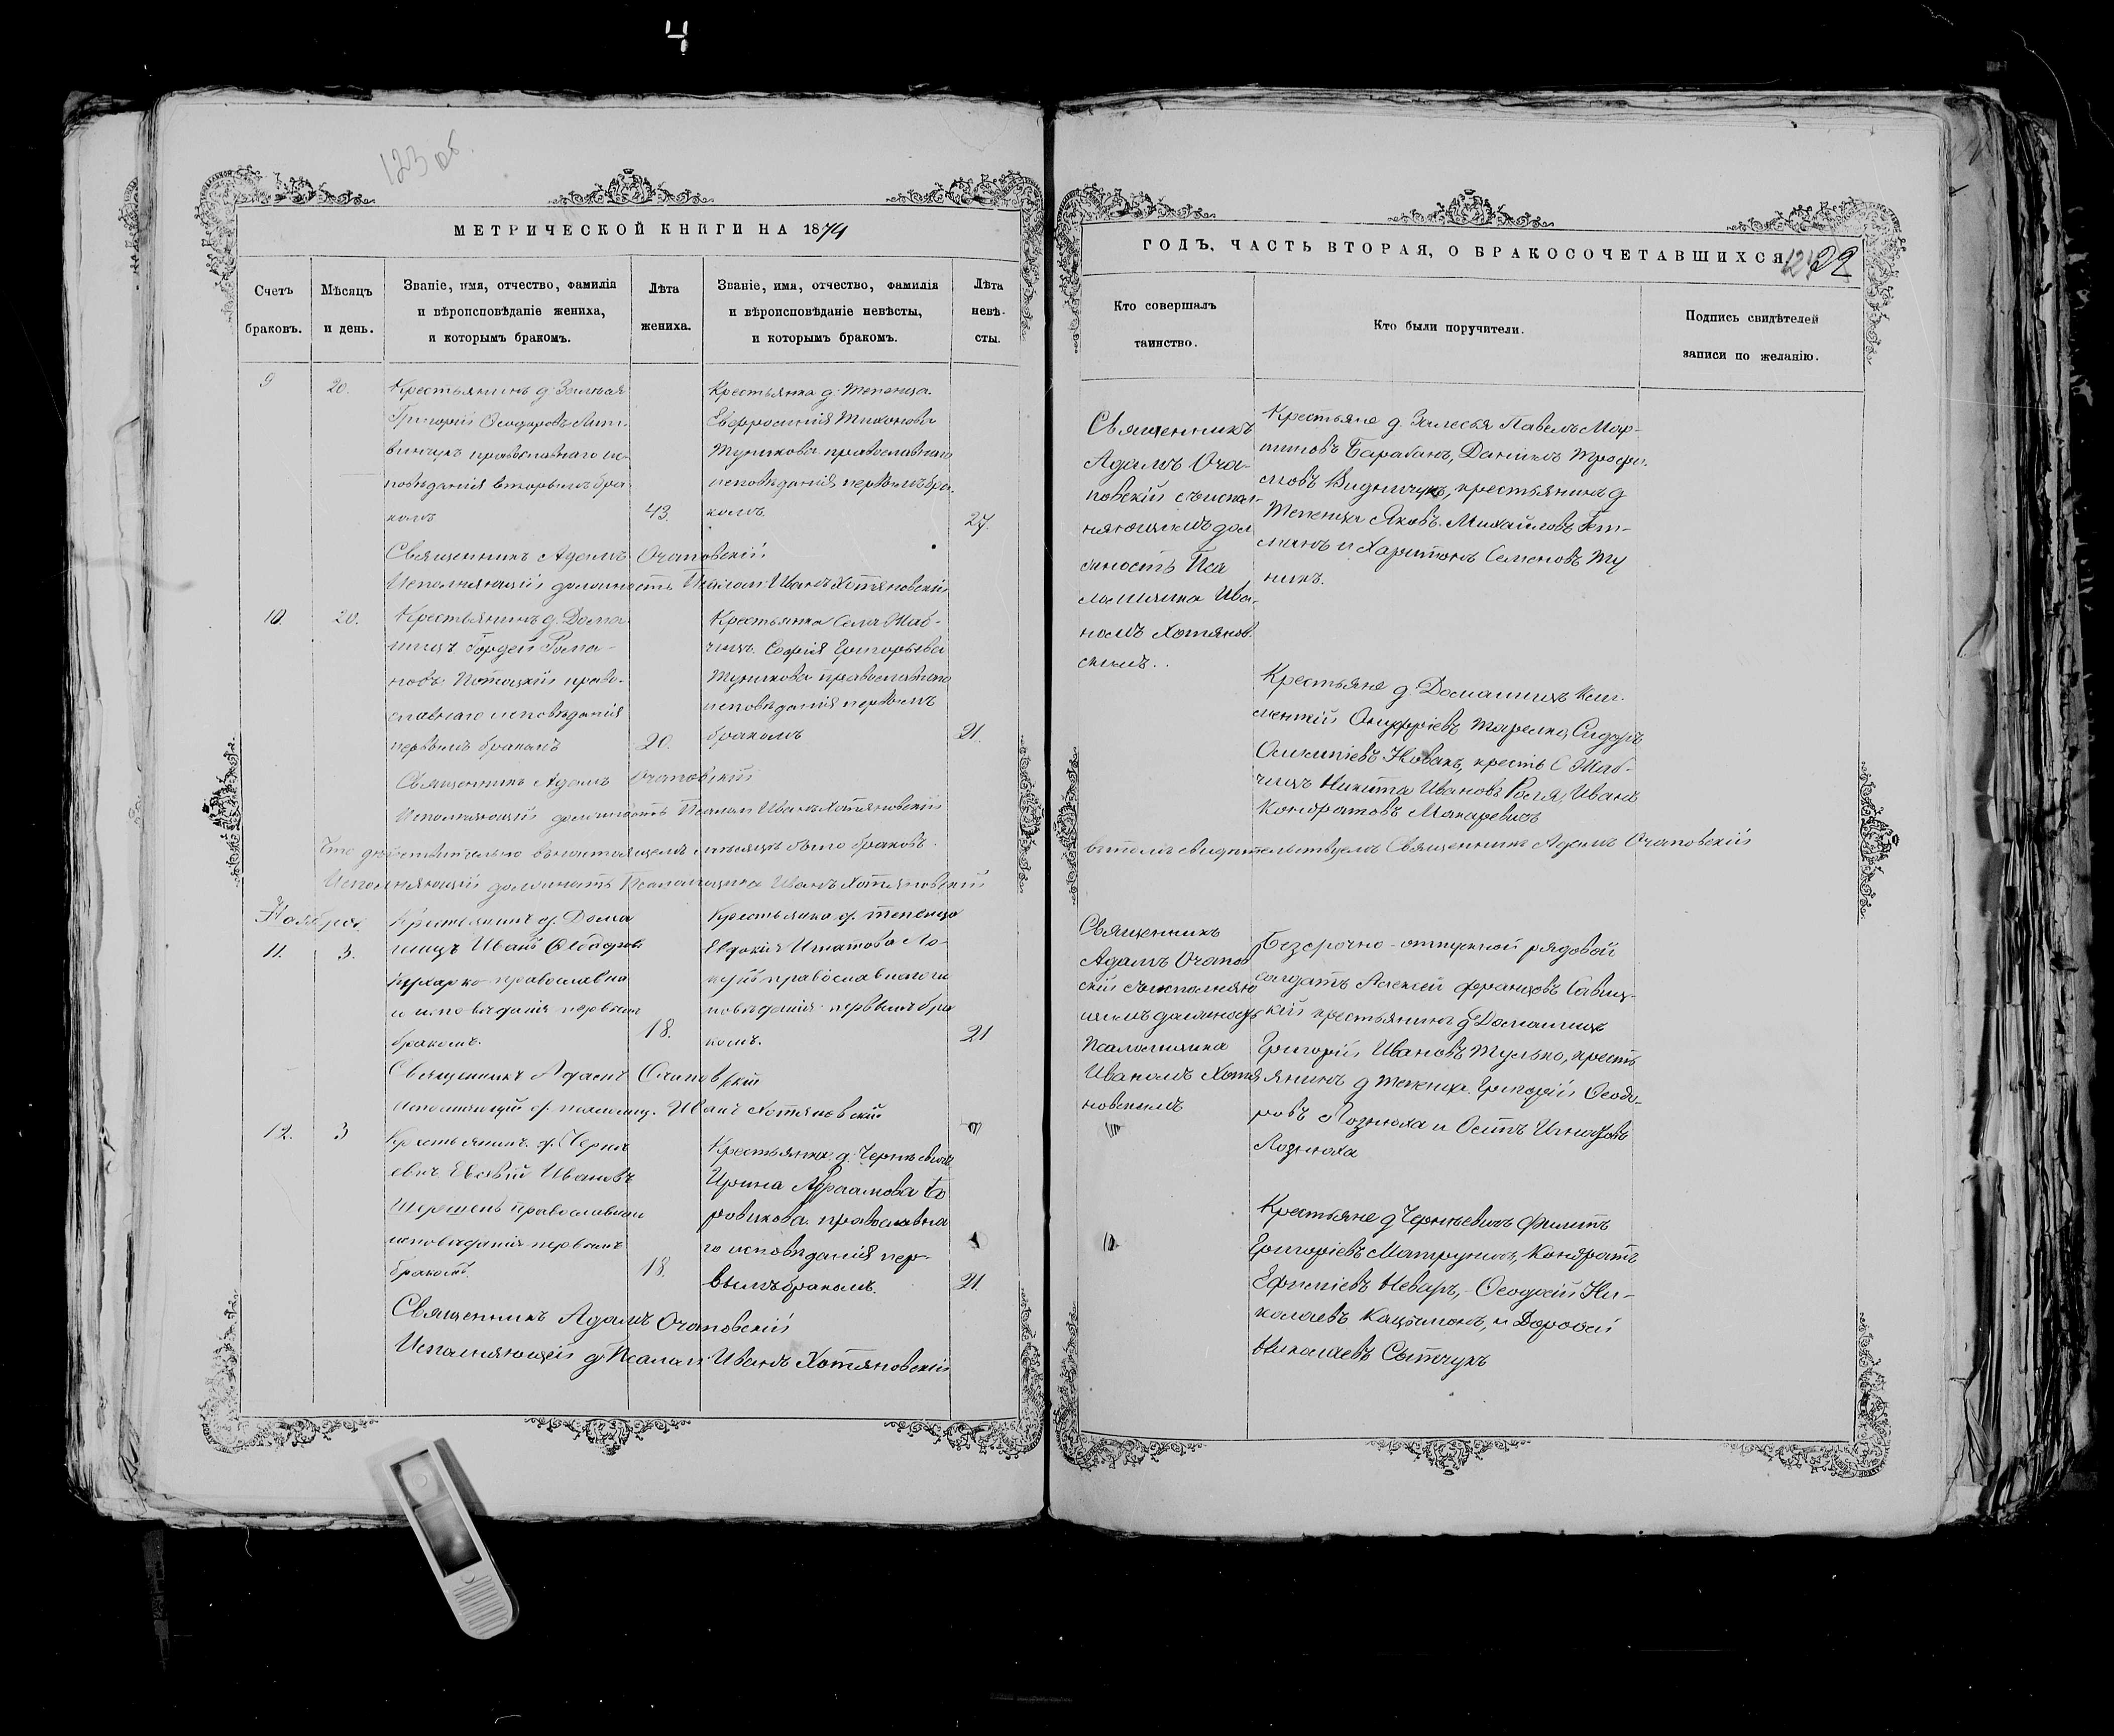 4
123 об.
МЕТРИЧЕСКОЙ КНИГИ НА 1874
Счетъ браковъ.
Мѣсяцъ и день.
Званіе, имя, отчество, фамилія
и вѣроисповѣданіе жениха,
и которымъ бракомъ.
Лѣта
жениха.
Званіе, имя, отчество, фамилія
и вѣроисповѣданіе невѣсты,
и которымъ бракомъ.
Лѣта
невѣ-
сты.
9
20.
Крестьянинъ д.
Григорій Ѳеодоровъ Лит-
винчукъ православнаго ис-
повѣданія вторымъ бра
комъ
43.
Крестьянка д. Тепенца
Евфросинія Тихонова
Туникова православнаго
исповѣданія первымъ бра-
комъ.
27.
Священникъ Адамъ Очаповскій
Исполняющій должность Псалом: Иванъ Хотяновскій
10.
20.
Крестьянинъ д. Дома-
шицъ Гордей Рома-
новъ Потоцкій право-
славнаго исповѣданія
первымъ бракомъ
20.
Крестьянка Села Жаб-
чицъ Софія Григорьева
Туникова православнаго
исповѣданія первымъ
бракомъ
21.
Священникъ Адамъ Очаповскій
Исполняющій должность Псалом Иванъ Хотяновскій
Что дѣйствительно въ настоящемъ мѣсяцѣ было браковъ
Исполняющій должность Псаломщика Иванъ Хотяновскій
Ноябрь
11.
3.
Крестьянинъ д. Дома
шицъ Иванъ Ѳеодоровъ
Кухарко православна
го исповѣданія первымъ
бракомъ.
18.
Крестьянка д. Тепенца
Евдокія Игнатова Ло-
православнаго ис
повѣданія первымъ бра
комъ.
21
Священникъ Адамъ Очаповскій
Исполняющій д. псаломщ. Иванъ Хотяновскій
12.
3
Крестьянинъ д. Черне
евич Ивановъ
Шерешень православнаго
исповѣданія первымъ
бракомъ.
18.
Крестьянка д. Чернѣевичъ
Ирина Авраамова Бо
ровикова православна
го исповѣданія пер-
вымъ бракомъ.
21.
Священникъ Адамъ Очаповскій
Исполняющій д Псалом: Иванъ Хотяновскій
ГОДЪ, ЧАСТЬ ВТОРАЯ, О БРАКОСОЧЕТАВШИХСЯ
Кто совершалъ
таинство.
Кто были поручители.
Подпись свидѣтелей
записи по желанію.
Священникъ
Адамъ Оча-
повскій съ испол-
няющимъ дол
жность Пса
ломщика Ива-
номъ Хотянов
скимъ.
Крестьяне д. Залесья Павелъ Мар-
тиновъ Барабанъ, Даниилъ Трофи-
мовъ Видничукъ, крестьянинъ д
Тепенца Яковъ Михайловъ Гет-
манъ и Харитонъ Семеновъ Ту
никъ.
Крестьяне д. Домашицъ Кли-
ментій Онуфріевъ Тарелко, Сидоръ
Новакъ, крестьяне С Жаб-
чицъ Никита Ивановъ Рогля, Иванъ
Кондратовъ Макаревичъ
въ томъ свидѣтельствуемъ Священникъ Адамъ Очаповскій
Священникъ
Адамъ Очапов
скій съ исполняю
щимъ должность
Псаломщика
Иваномъ Хотя
новскимъ
Безсрочно-отпускной рядовой
солдатъ Алексей Францовъ Савиц-
кій крестьянинъ д Домашицъ
Григорій Ивановъ Тулько, кресть
янинъ д Тепенца Григорій Ѳеодо-
ровъ Лознюха и Осипъ Игнатовъ
Лознюха
Крестьяне д Чернѣевичъ Филипъ
Григоріевъ Матрунчикъ, Кондратъ
Ефиміевъ Неваръ, Ѳеодосій Ни-
колаевъ Кацъманъ, и Дорофей
Николаевъ Сытчукъ